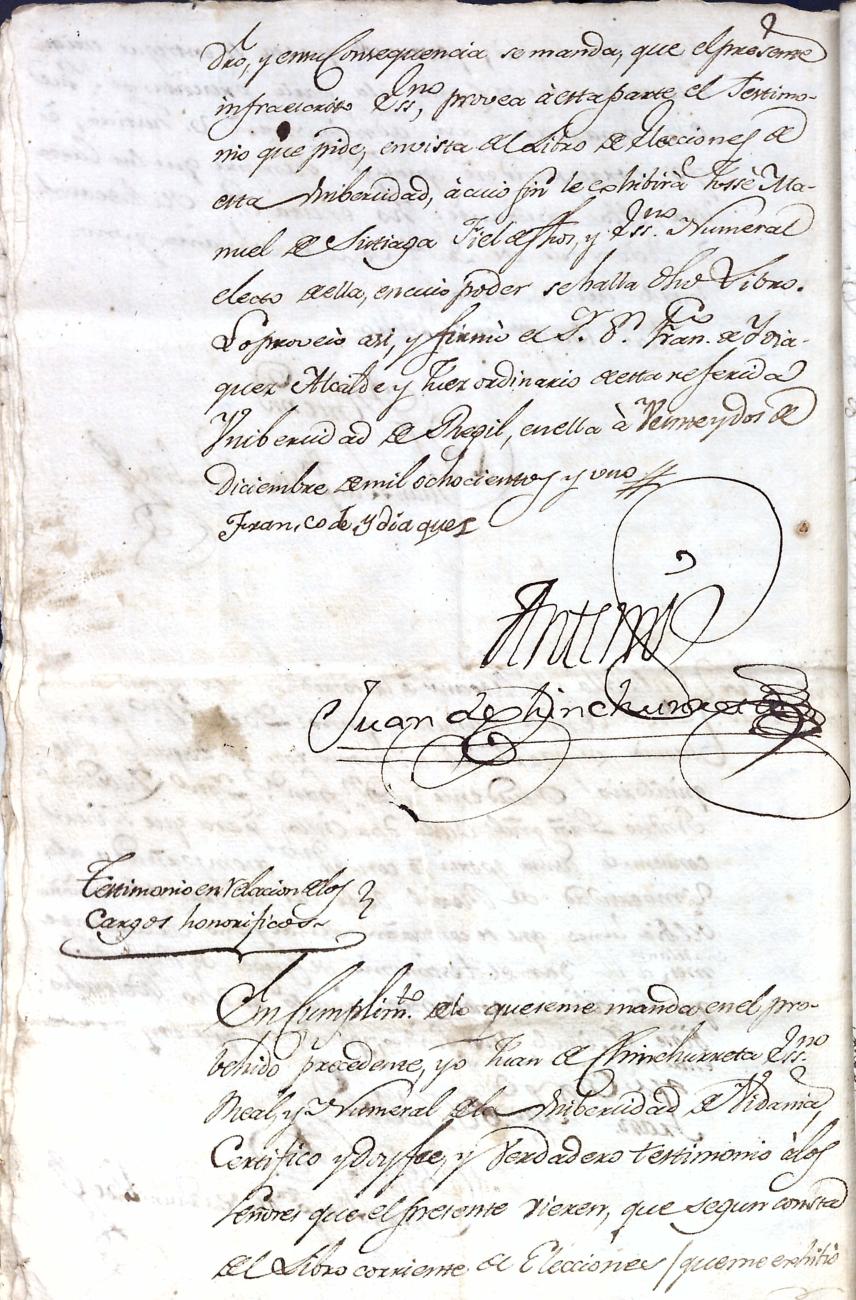 dro, y en su Consequencia se manda, que el presente
infraescrito Essno, provea à esta parte el Testimo-
nio que pide, en vista del Libro de Elecciones de
esta Unibersidad, à cuio fin le exhibirà Jossè Ma-
nuel de Sistiaga Fiel de fhos, y Essno. Numeral
electo de ella, en cuio poder se halla dho Libro.
Lo proveiò asi, y firmò el S.r D.n Fran.co de Ydia-
quez Alcalde y Juez ordinario de esta referida
Unibersidad de Regil, en ella à Veinte y dos de
Diciembre de mil ochocientos y uno
Fran.co de ydiaquez
Antemi
Juan de Chinchurreta
Testimonio en relacion de los
Cargos honorificos
En Cumplim.to de lo que se me manda en el pro-
behido precedente, yo Juan de Chinchurreta Essno
Real, y Numeral de la Unibersidad de Vidania,
Certifico y doy fee, y Verdadero testimonio à los
Señores que el presente vieren, que segun consta
del Libro corriente de Elecciones / que me exhibio